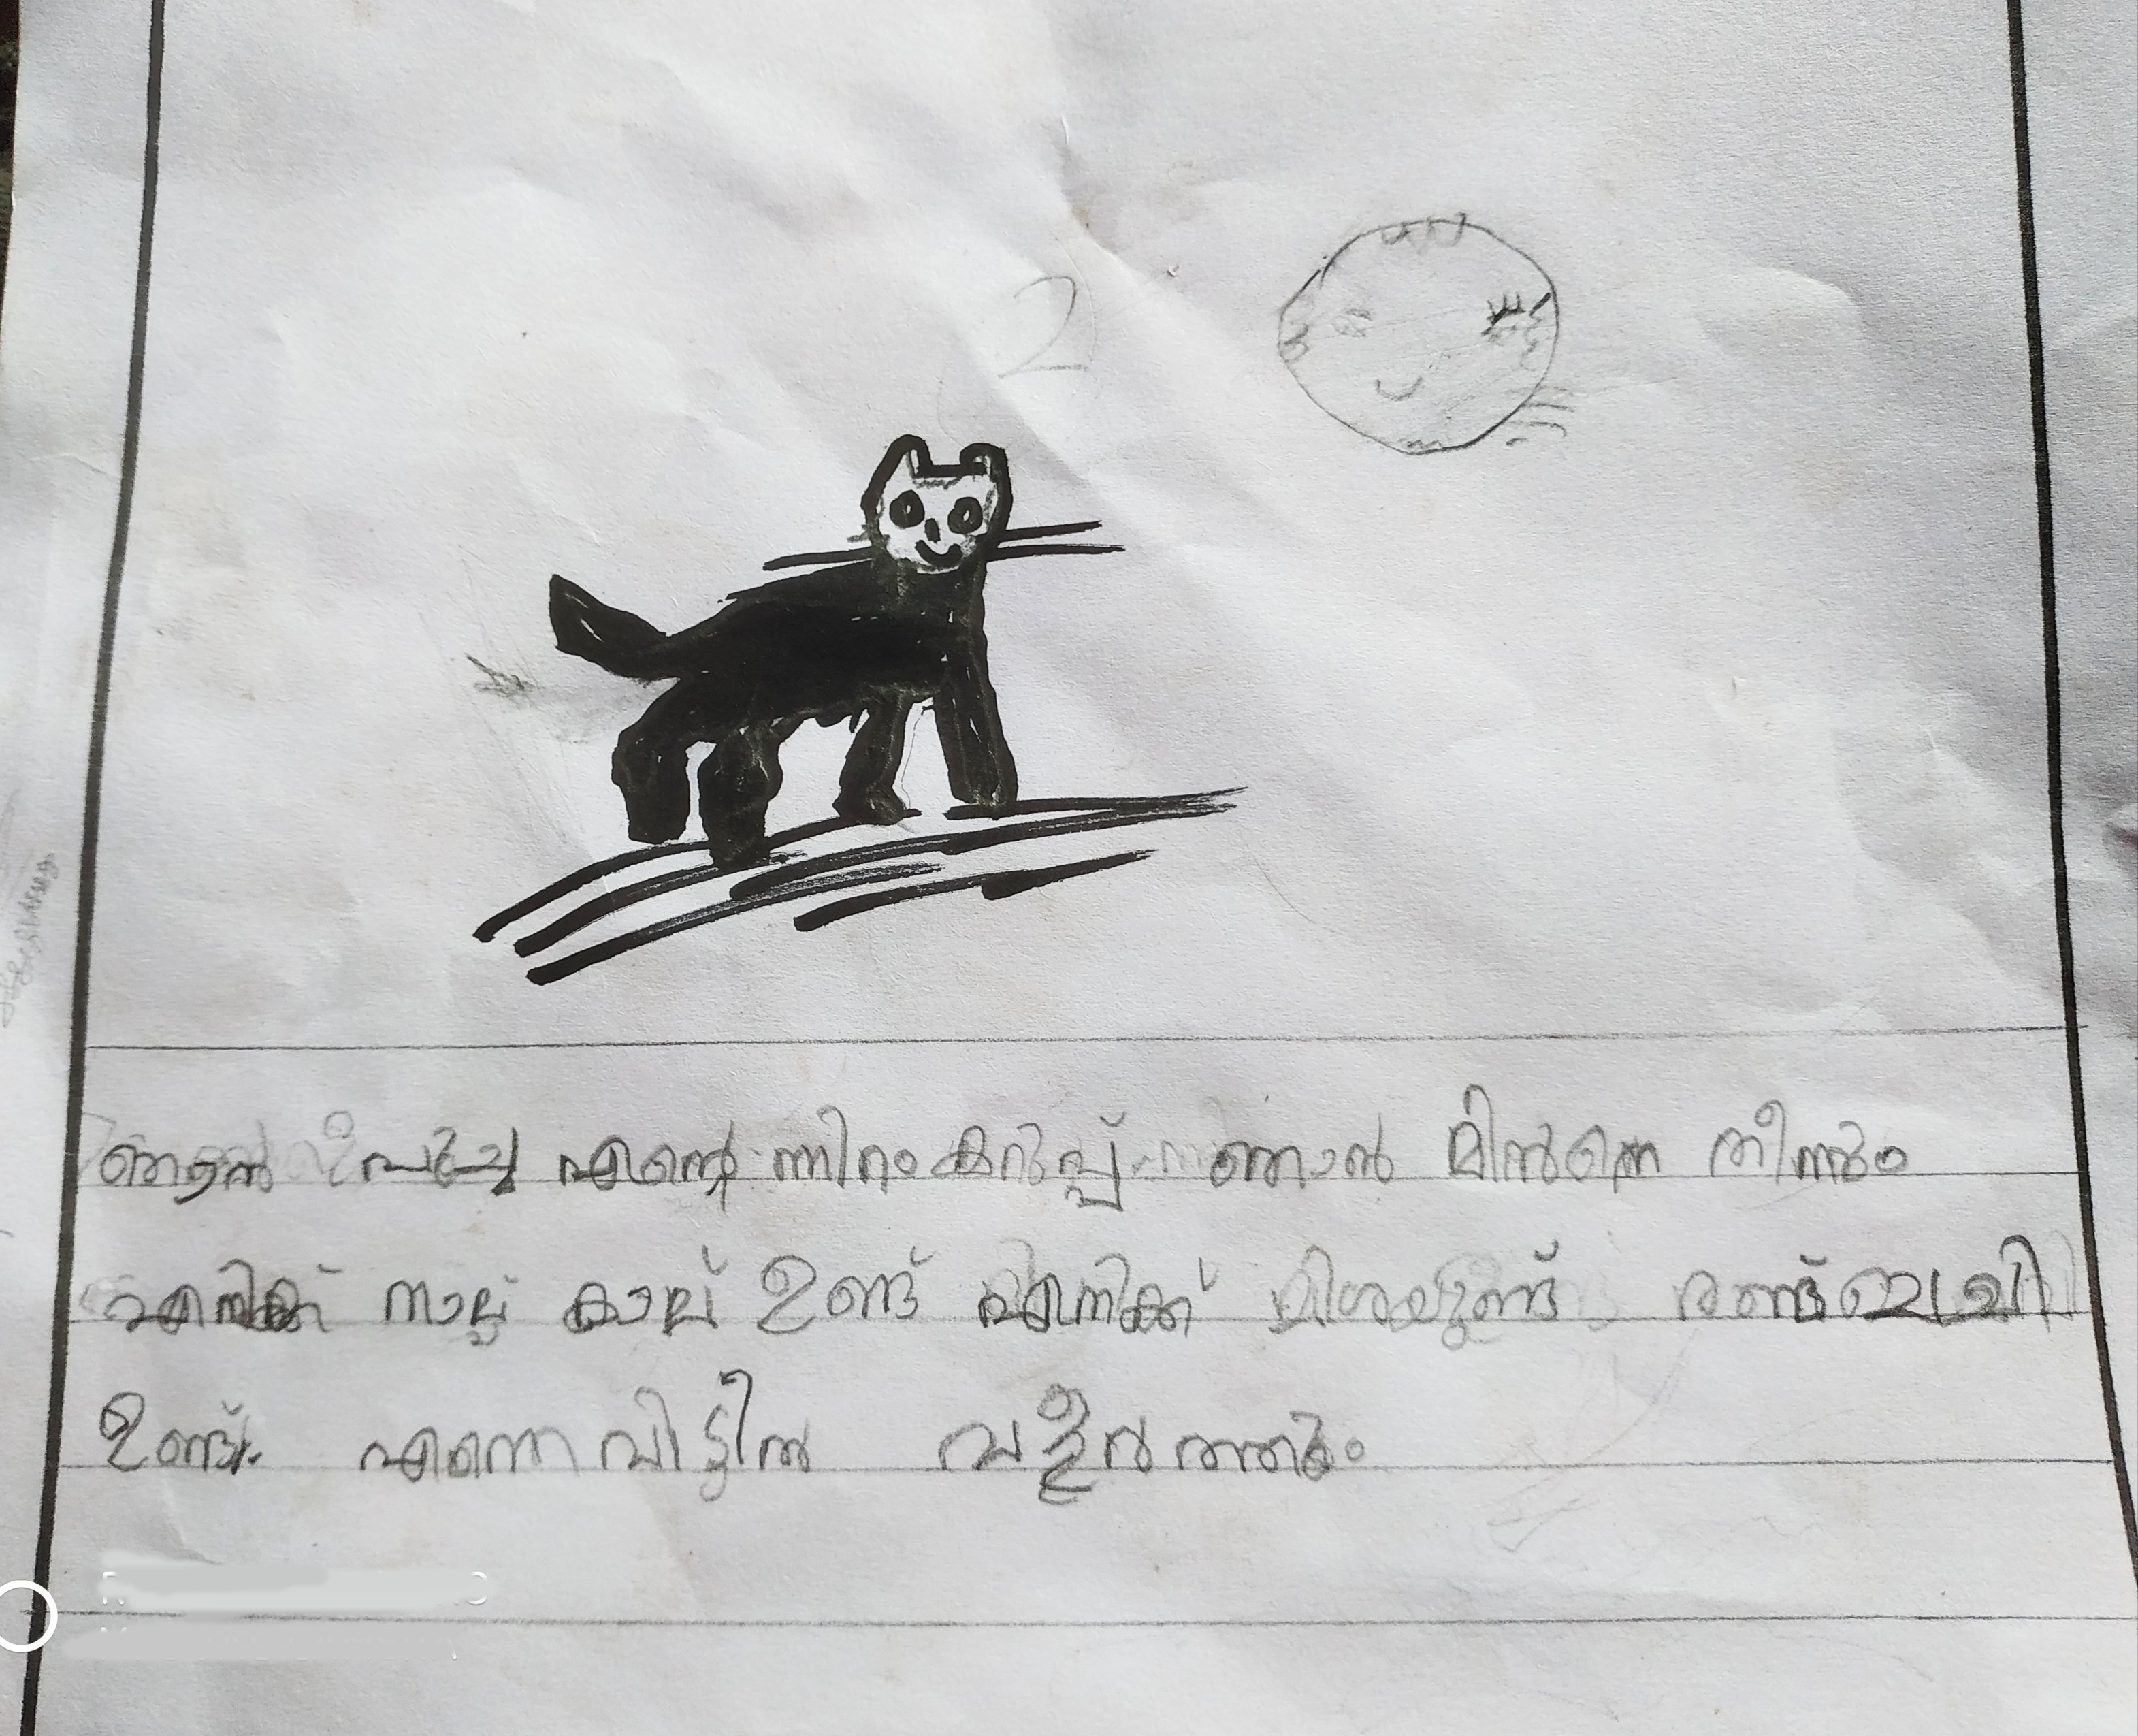 2
ഞാൻ പൂച്ച എന്റെ നിറം കറുപ്പ് ഞാൻ മിൻനെ തീന്നും
എനിക്ക് നാല് കാല് ഉണ്ട് എനിക്ക് മിശയുണ്ട് രണ്ട്
ഉണ്ട്. എന്നെ വിട്ടിൽ വളർത്തും